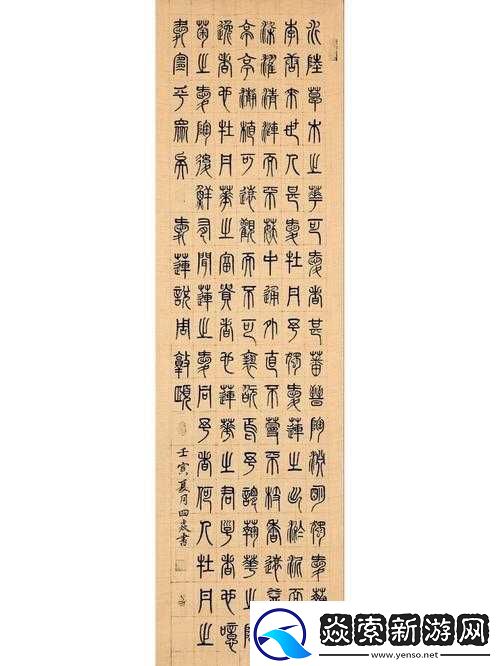 水陸草木之華可愛者甚蕃晉陶淵明獨愛菊
李唐來世人甚愛牡丹予獨愛蓮之出淤泥而
染濯清漣而不妖中通外直不蔓不枝香遠益
亭亭淨植可遠觀而不可褻翫焉予謂菊華之隱
逸者也牡丹華之富貴者也蓮華之君子者也噫
菊之愛陶後鮮有聞蓮之愛同予者何人牡丹之
愛宜乎眾矣 愛蓮說周敦頤
壬寅夏月四書
焱索新游网
www.yenso.net